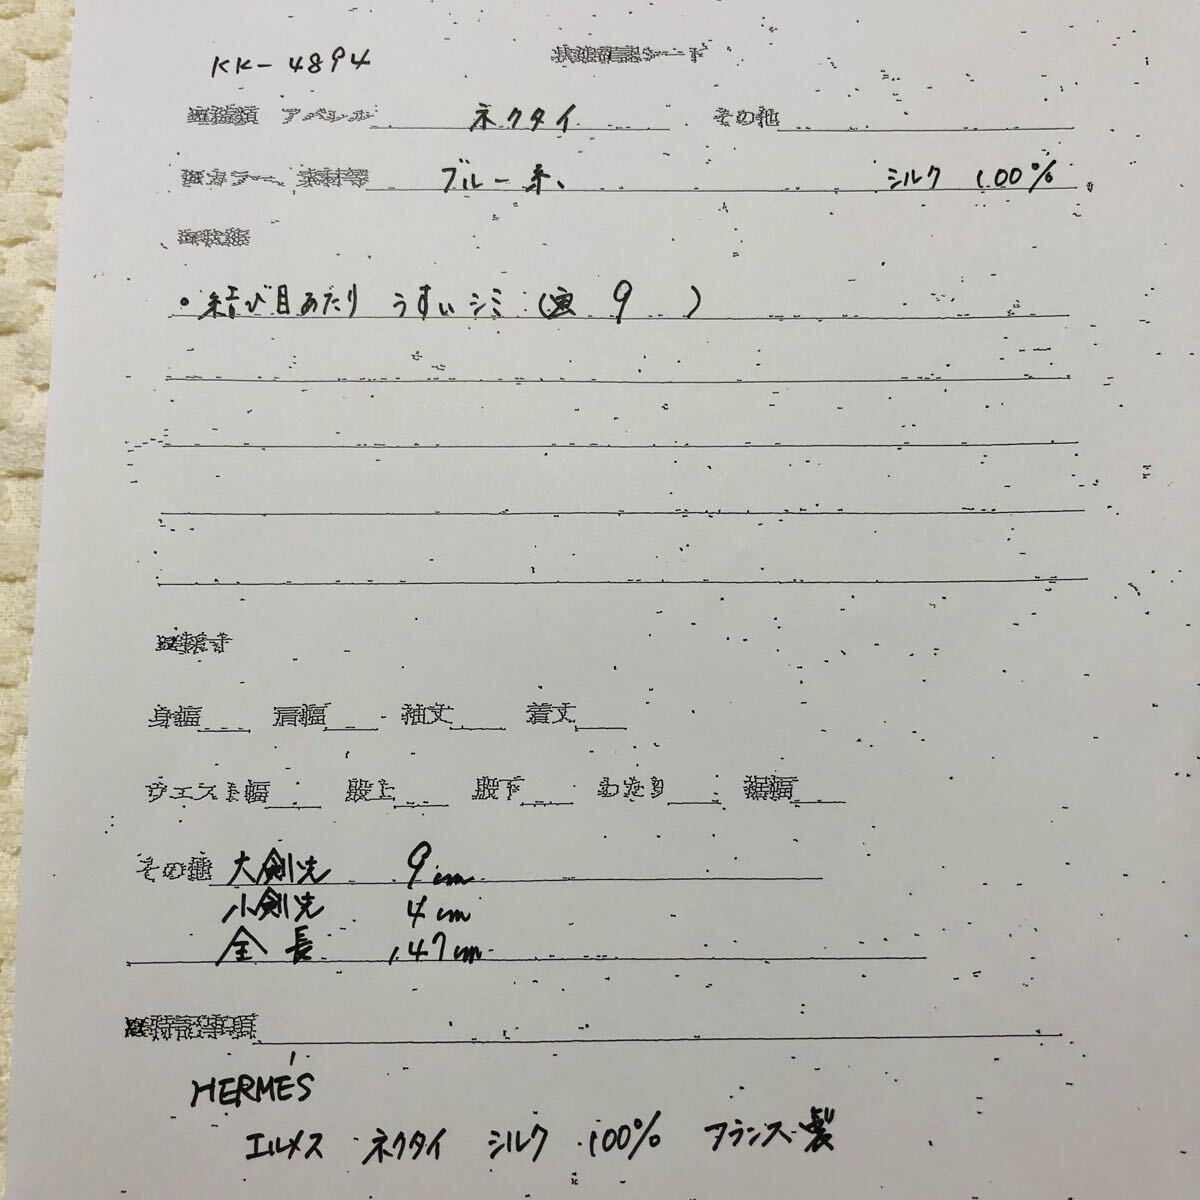 KK-4894 状態確認シート
アパレル ネクタイ その他
カラー、素材等 ブルー系、 シルク 100%
・結び目あたり うすいシミ (図 9 )
採寸
身幅 肩幅 袖丈 着丈
ウエスト幅 股上 股下 わたり 裾幅
その他 大剣先 9cm
小剣先 4cm
全長 147cm
特記事項
HERMÉS
エルメス ネクタイ シルク 100% フランス製